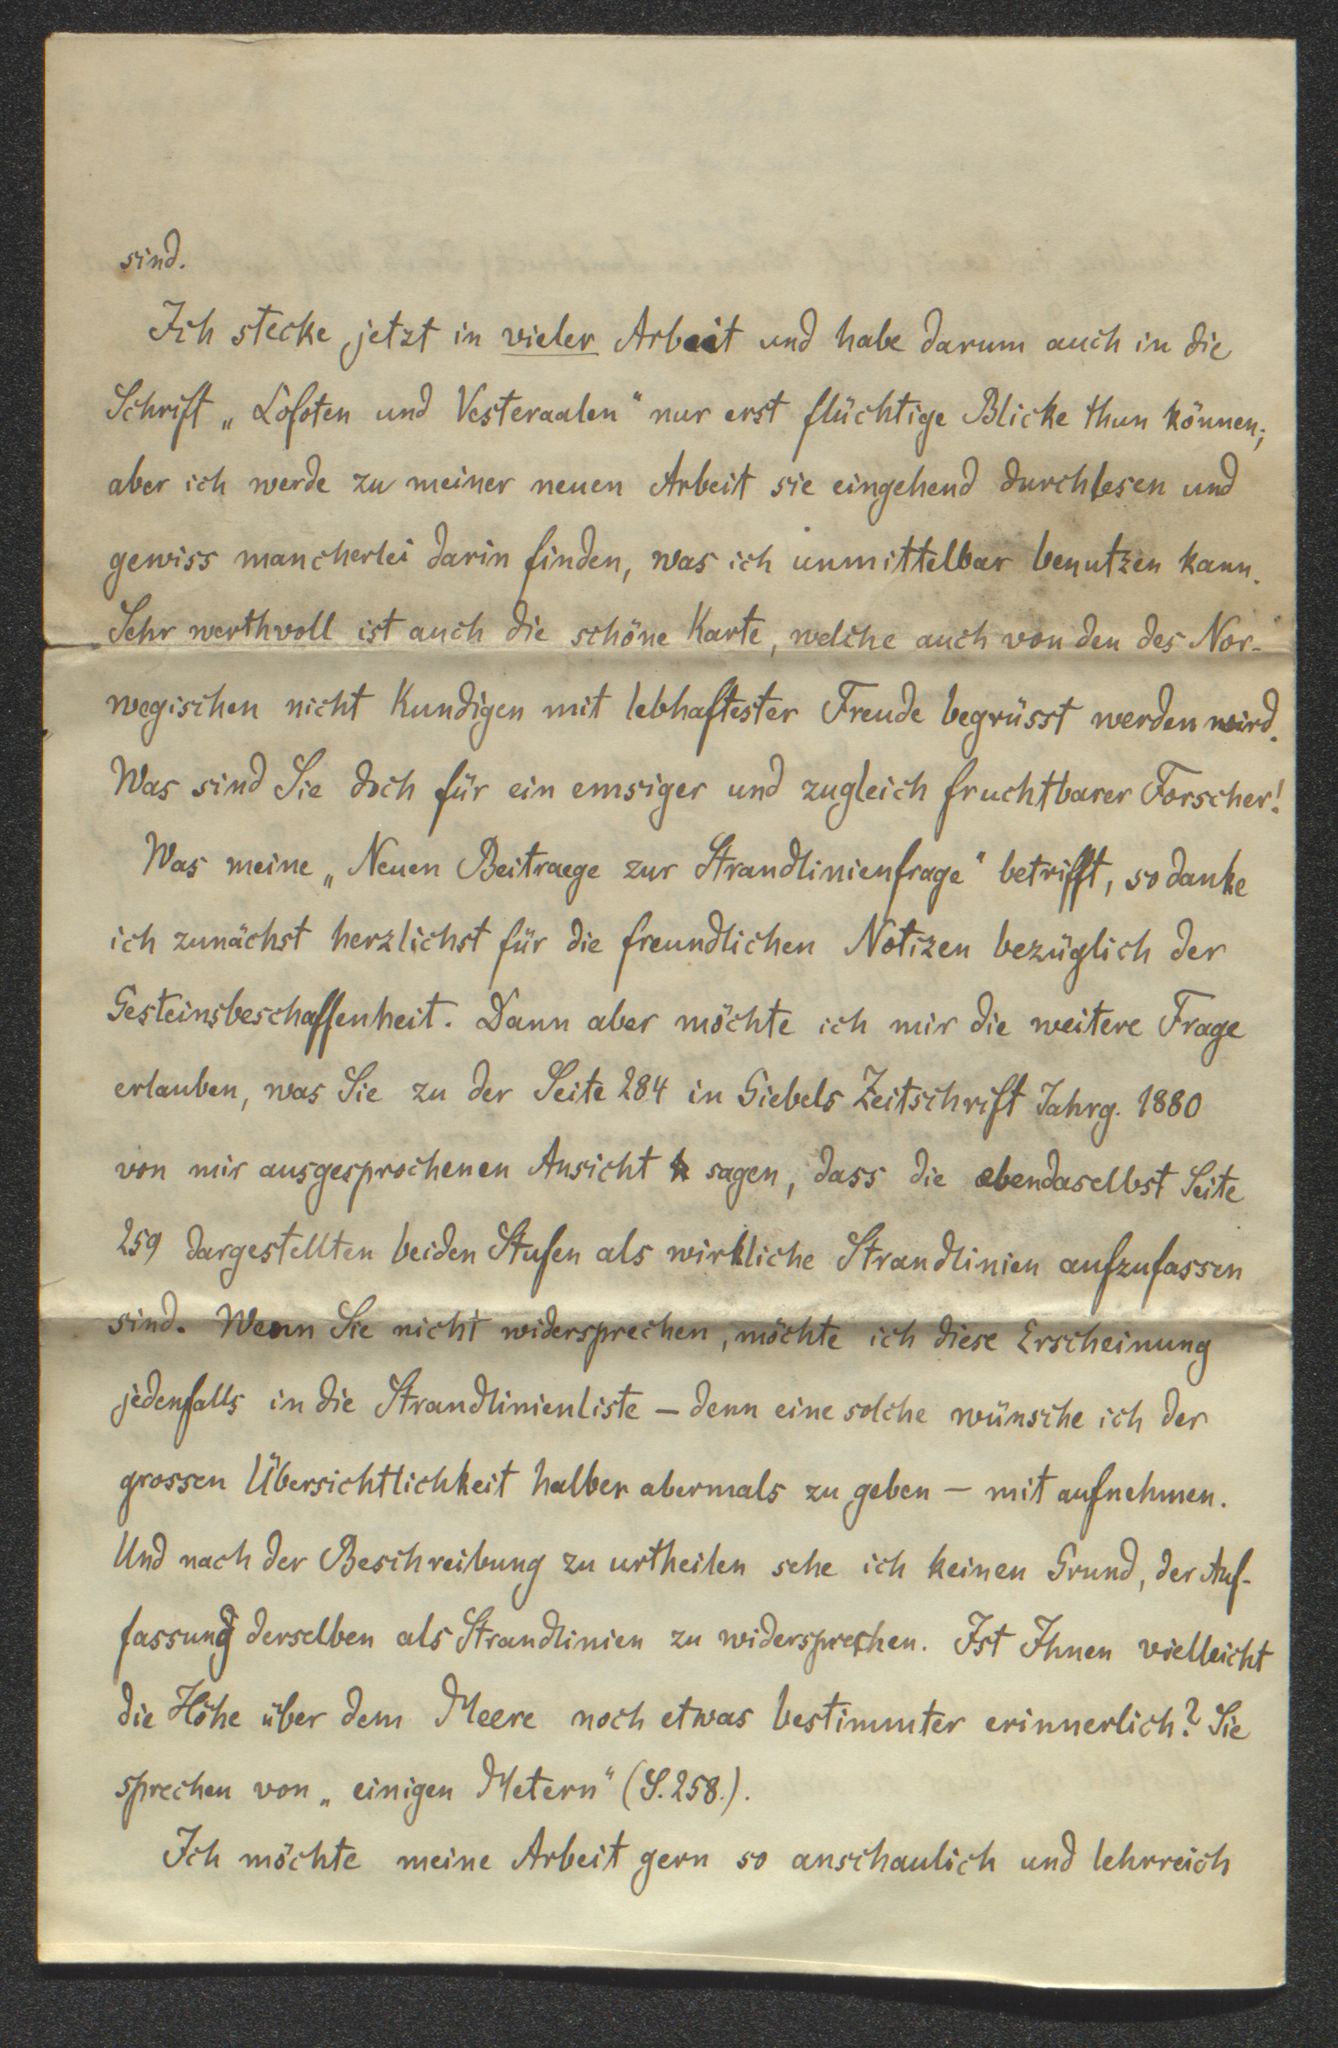 sind.
Ich stecke jetzt in vieler Arbeit und habe darum auch in die
Schrift „Lofoten und Vesteraalen" nur erst flüchtige Blicke thun können;
aber ich werde zu meiner neuen Arbeit sie eingehend durchlesen und
gewiss mancherlei darin finden, was ich unmittelbar benutzen kann.
Sehr werthvoll ist auch die schöne Karte, welche auch von den des Nor-
wegischen nicht Kundigen mit lebhaftester Freude begrüsst werden wird.
Was sind Sie doch für ein emsiger und zugleich fruchtbarer Forscher!
Was meine „Neuen Beitraege zur Strandlinienfrage" betrifft, so danke
ich zunächst herzlichst für die freundlichen Notizen bezüglich der
Gesteinsbeschaffenheit. Dann aber möchte ich mir die weitere Frage
erlauben, was Sie zu der Seite 284 in Giebels Zeitschrift Jahrg. 1880
von mir ausgesprochenen Ansicht sagen, dass die ebendaselbst Seite
259 dargestellten beiden Stufen als wirkliche Strandlinien aufzufassen
sind. Wenn Sie nicht widersprechen, möchte ich diese Erscheinung
jedenfalls in die Strandlinienliste – denn eine solche wünsche ich der
grossen Übersichtlichkeit halber abermals zu geben – mit aufnehmen.
Und nach der Beschreibung zu urtheilen sehe ich keinen Grund, der Auf-
fassung derselben als Strandlinien zu widersprechen. Ist Ihnen vielleicht
die Höhe über dem Meere noch etwas bestimmter erinnerlich? Sie
sprechen von „einigen Metern" (S. 258.).
Ich möchte meine Arbeit gern so anschaulich und lehrreich